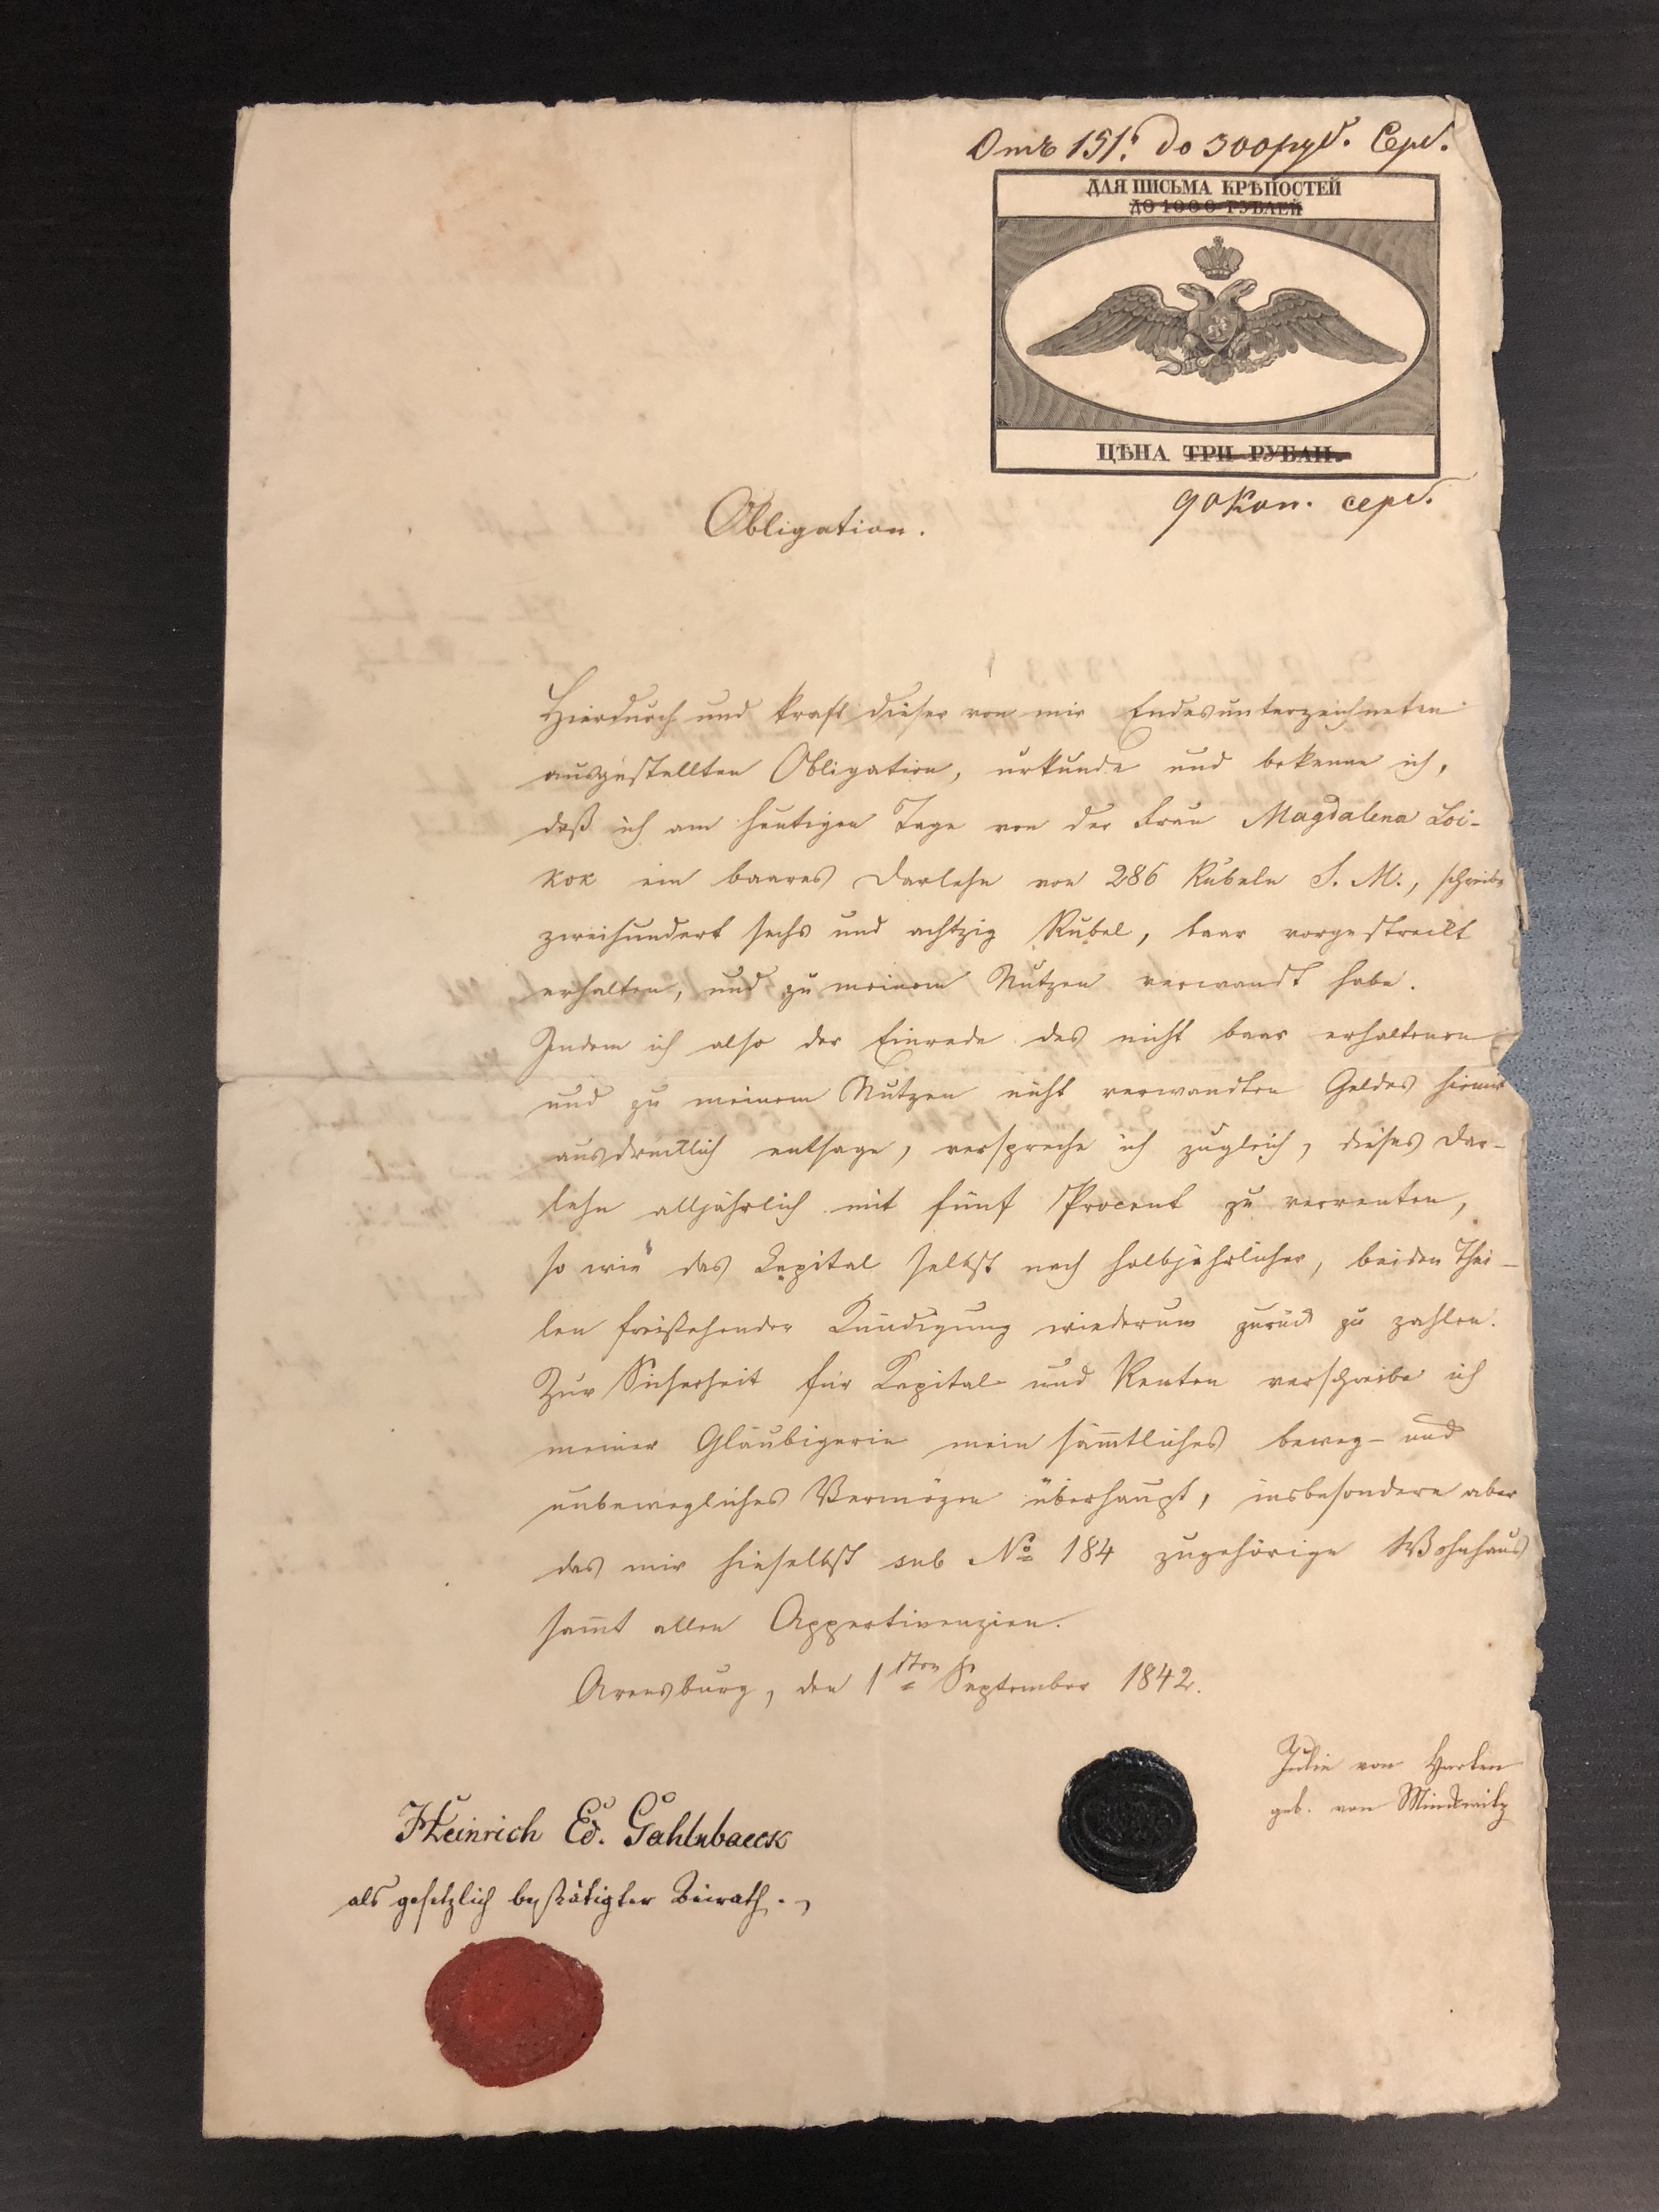 Отъ 151. до 300 руб. Сереб.
ДЛЯ ПИСЬМА КРѢПОСТЕЙ
ДО 1000 РУБЛЕЙ
ЦѢНА ТРИ РУБЛИ.
90 Коп. сереб.
Obligation.
Hierdurch und kraft dieser von mir Endesunterzeichneten
ausgestellten Obligation, urkunde und bekenne ich,
daß ich am heutigen Tage von der Frau Magdalena Loi-
kok ein baares Darlehn von 286 Rubeln S. M., schreibe
zweihundert sechs und achtzig Rubel, baar vorgestreckt
erhalten, und zu meinem Nutzen verwandt habe.
Indem ich also der Einrede des nicht baar erhaltenen
und zu meinem Nutzen nicht verwandten Geldes hiemit
ausdrücklich entsage, verspreche ich zugleich, dieses Dar-
lehn alljährlich mit fünf Procent zu verrenten,
so wie das Capital selbst nach halbjährlicher, beiden Thei-
len freistehender Kündigung wiederum zurück zu zahlen.
Zur Sicherheit für Kapital und Renten verschreibe ich
meiner Gläubigerin mein sämtliches beweg- und
unbewegliches Vermögen überhaupt, insbesondere aber
das mir hieselbst sub No 184 zugehörige Wohnhaus
samt allen Appertinenzien.
Arensburg, den 1sten September 1842.
Julie von Harten
geb. von Minckwitz
Heinrich Ed. Gahlnbaeck
als gesetzlich bestätigter Beirath.